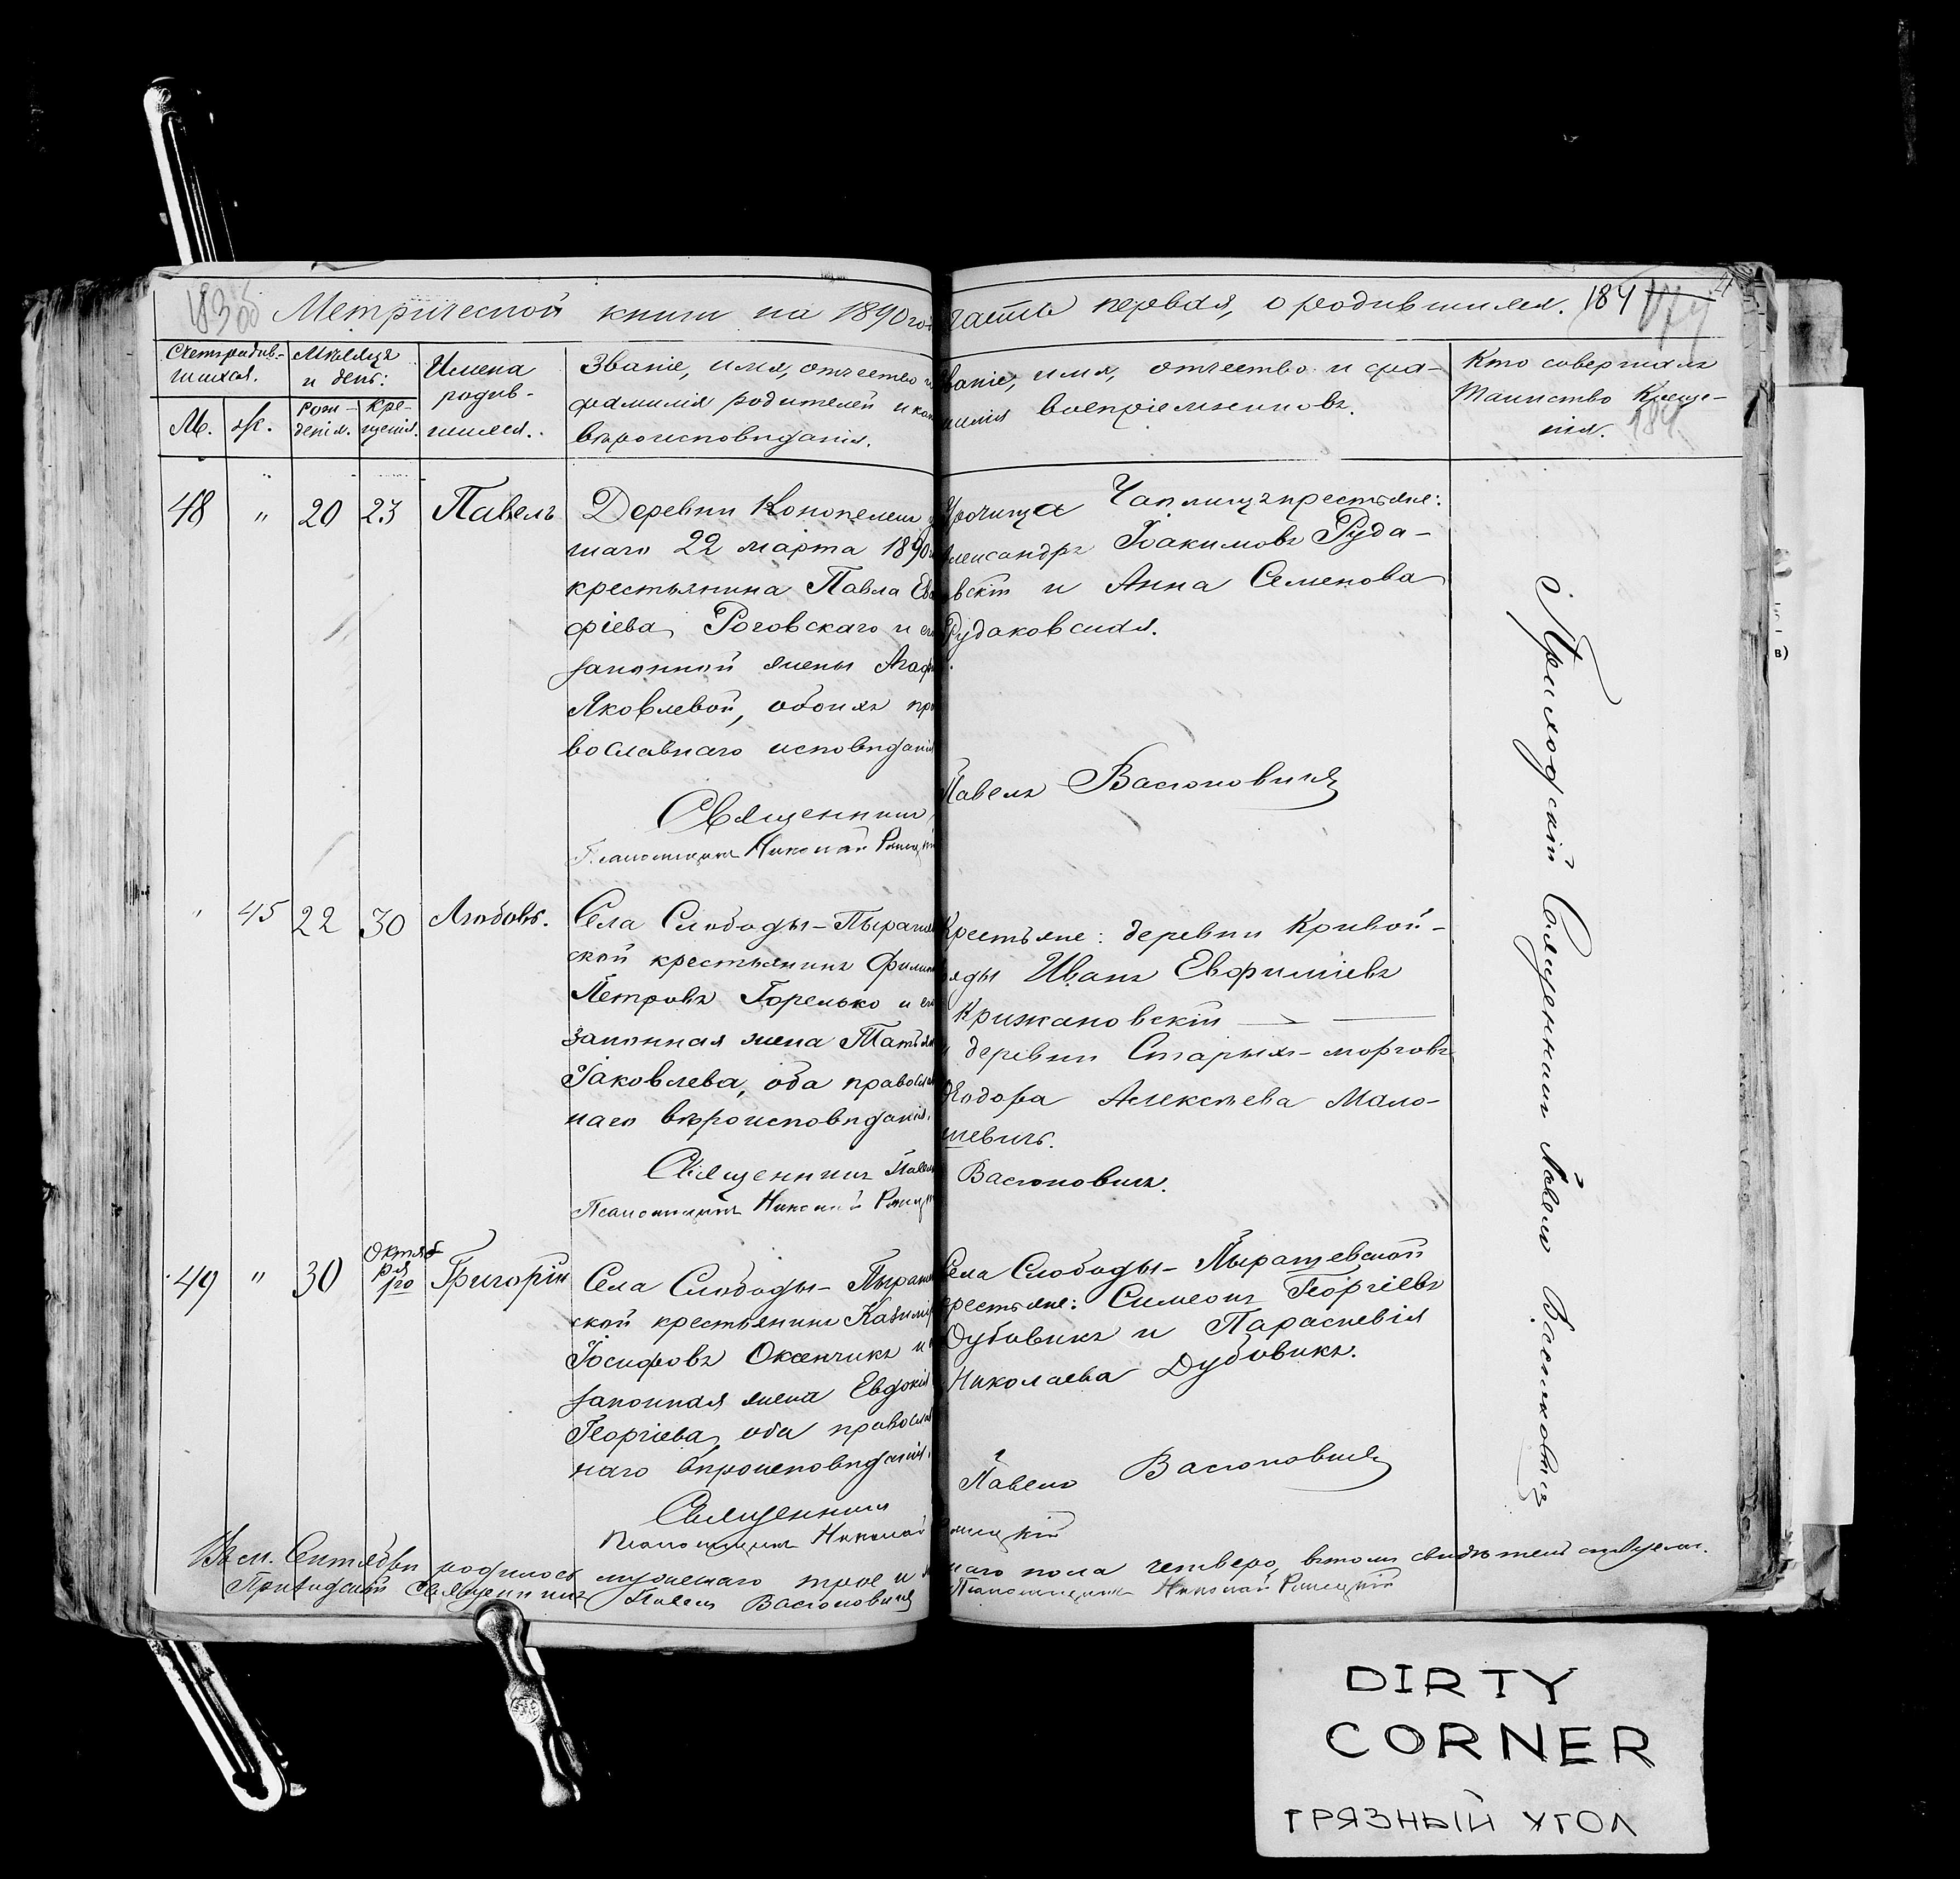 Метрической книги на 1890 год
часть первая, о родившихся. 184
Счетъ родив-
шихся.
М. Ж.
Мѣсяцъ
и день:
Рож-
денія.
Кре-
щенія.
Имена
родив-
шихся.
Званіе, имя, отчество и
фамилія родителей и како
вѣроисповѣданія.
Званіе, имя, отчество и фа-
милія воспріемниковъ.
Кто совершалъ
Таинство Креще-
нія. 184
48 " 20 23 Павелъ
Деревни Конопелеи у
шаго 22 марта 1890
крестьянина Павла Ев
фіева Роговскаго и ег
законной жены Агаф
Яковлевой, обоихъ пра
вославнаго исповѣданія
Священникъ
Псаломщикъ Николай
Урочища Чаплицъ крестьяне:
Александръ Іоакимовъ Руда-
вскій и Анна Семенова
Рудаковская.
Павелъ Васюковичъ
" 45 22 30 Любовь.
Села Слободы-Пыраше
ской крестьянинъ Филип
Петровъ Горелько и ег
законная жена Татьян
Іаковлева, оба православ
наго вѣроисповѣданія.
Священникъ Павел
Псаломщикъ Николай
Крестьяне: деревни Кривой-
ряды Иванъ Евфиміевъ
Крижановскій
и деревни Старыхъ-морговъ
Ѳеодора Алексѣева Мало-
шевичъ.
Васюковичъ.
49 " 30 Октяб
ря
1го Григорій
Села Слободы-Пыраше
ской крестьянинъ Казимір
Іосифовъ Оканчикъ и
законная жена Евдокія
Георгіева, оба православ
наго вѣроисповѣданія.
Священникъ
Псаломщикъ Николай
Села Слободы-Пырашевской
крестьяне: Симеонъ Георгіевъ
Дубовикъ и Параскевія
Николаева Дубовикъ.
Павелъ Васюковичъ
Въ м. Сентябрѣ родилось мужескаго трое и
наго пола четверо, въ томъ свидѣтельствуемъ.
Приходскій Священникъ Павелъ Васюковичъ
Псаломщикъ Николай
Приходскій Священникъ Павелъ Васюковичъ
DIRTY
CORNER
ГРЯЗНЫЙ УГОЛ